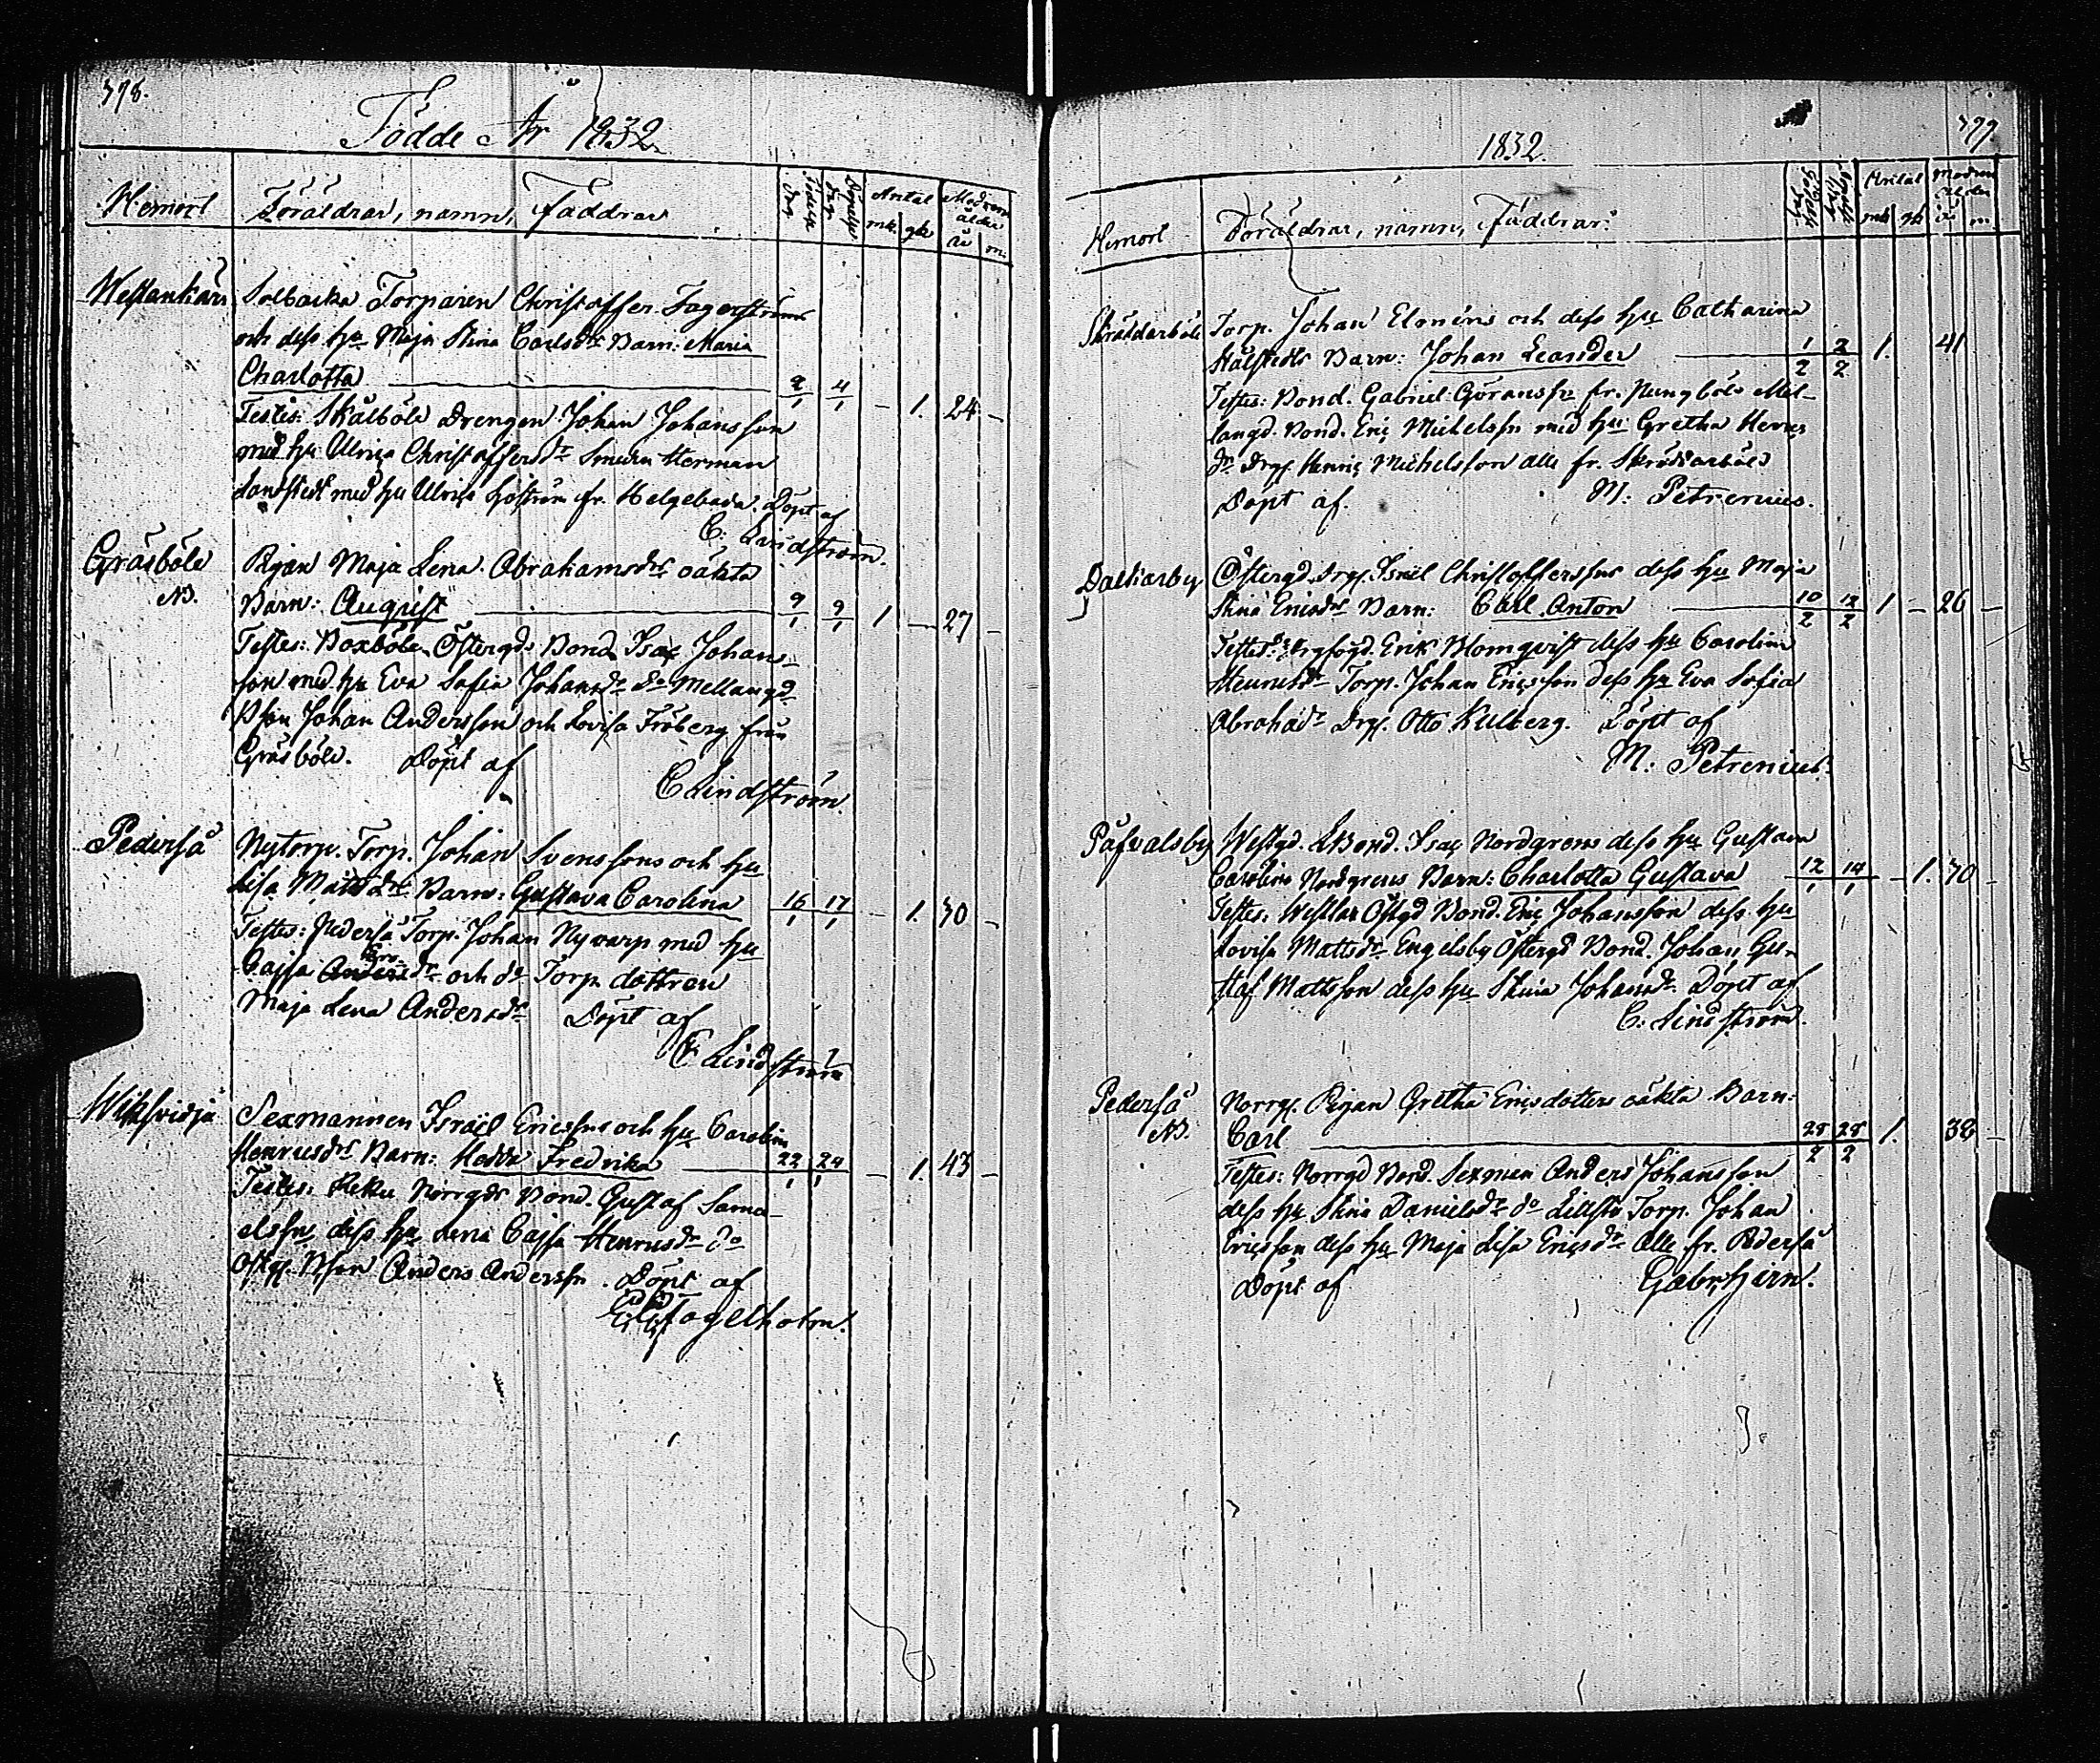 398.
Födde År 1832
Hemort Föräldrar, namn, Faddrar Födelse Dag Döpelse Dag Antal mk. qk Modrens ålder år m.
Westankärr Solbacka Torparen Christoffer Fagerströms
och dess hu Maja Stina Carlsdrs Barn: Maria
Charlotta 2/1 4/1 – 1. 24 –
Testes: Skålböle Drengen Johan Johansson
med hu Ulrica Christoffersdr Smeden Herman
Landstedt med hu Ulrica fr. Helgeboda. Döpt af
C: Lindström.
Gräsböle Pigan Maja Lena Abrahamsdrs oäkta
NB. Barn: August 9/1 9/1 1 – 27 –
Testes: Boxböle Östergds Bond Isac Johans-
son med hu Eva Safia Johansdr do Mellangd
Bson Johan Andersson och Lovisa Fröberg från
Gräsböle. Döpt af
C Lindström
Pederså Nytorp. Torp. Johan Svenssons och hu
Lisa Mattsdrs Barn: Gustava Carolina 16/1 17/1 – 1. 30 –
Testes: Pederså Torp. Johan Nyvarp med hu
Cajsa Andersdr och do Torp. dottren
Maja Lena Andersdr Döpt af
C Lindström
Wiksvidja Sexmannen Israël Ericssns och hu Carolina
Henricsdrs Barn: Hedda Fredrika 22/1 24/1 – 1. 43 –
Testes: Reku Norrgds Bond. Gustaf Samu-
elssn dess hu Lena Cajsa Henricsdr do
Östg. Bson Anders Anderssn. Döpt af
Fagelholm.
399
1832.
Hemort Föräldrar, namn, Faddrar. Födelse Dag Döpelse Dag Antal mk qk Modrens ålder år m
Skräddarböle Torp. Johan Elonéns och dess hu Catharina
Stålstedts Barn: Johan Leander 1/2 2/2 1. 41
Testes: Bond. Gabriel Göranssn fr. Nungböle Mel-
langd. Bond. Eric Michelssn med hu Gretha Henrics
dr Drg. Henric Michelsson alle fr. Skräddarböle
Döpt af. M: Petrenius.
Dalkarby Östergd. Drg. Isräel Christofferssns dess hu Maja
Stina Ericsdrs Barn: Carl Anton 10/2 12/2 1 – 26 –
Testes: Erik Blomqvist dess hu Carolina
Henricsdr Torp. Johan Ericsson dess hu Eva Sofia
Abrahadr Drg. Otto Kulberg. Döpt af
M: Petrenius.
Påfvalsby Westgd. Bond. Isac Nordgrens dess hu Gustava
Carolina Nordgrens Barn: Charlotta Gustava 12/1 14/1 – 1. 30 –
Testes: Östgd Bond. Eric Johansson dess hu
Lovisa Mattsdr Engelsby Östergd Bond. Johan Gu-
staf Mattsson dess hu Stina Johansdr. Döpt af
C: Lindström.
Pederså Norrg. Pigan Gretha Ericsdoters oäkta Barn:
NB. Carl 28/2 28/2 1. 38 –
Testes: Norrgd Bond. Sexman Anders Johansson
dess hu Stina Danielsdr do Torp. Johan
Ericsson dess hu Maja Lisa Ericsdr Alle fr. Pderså
Döpt af Gabr: Hjern.